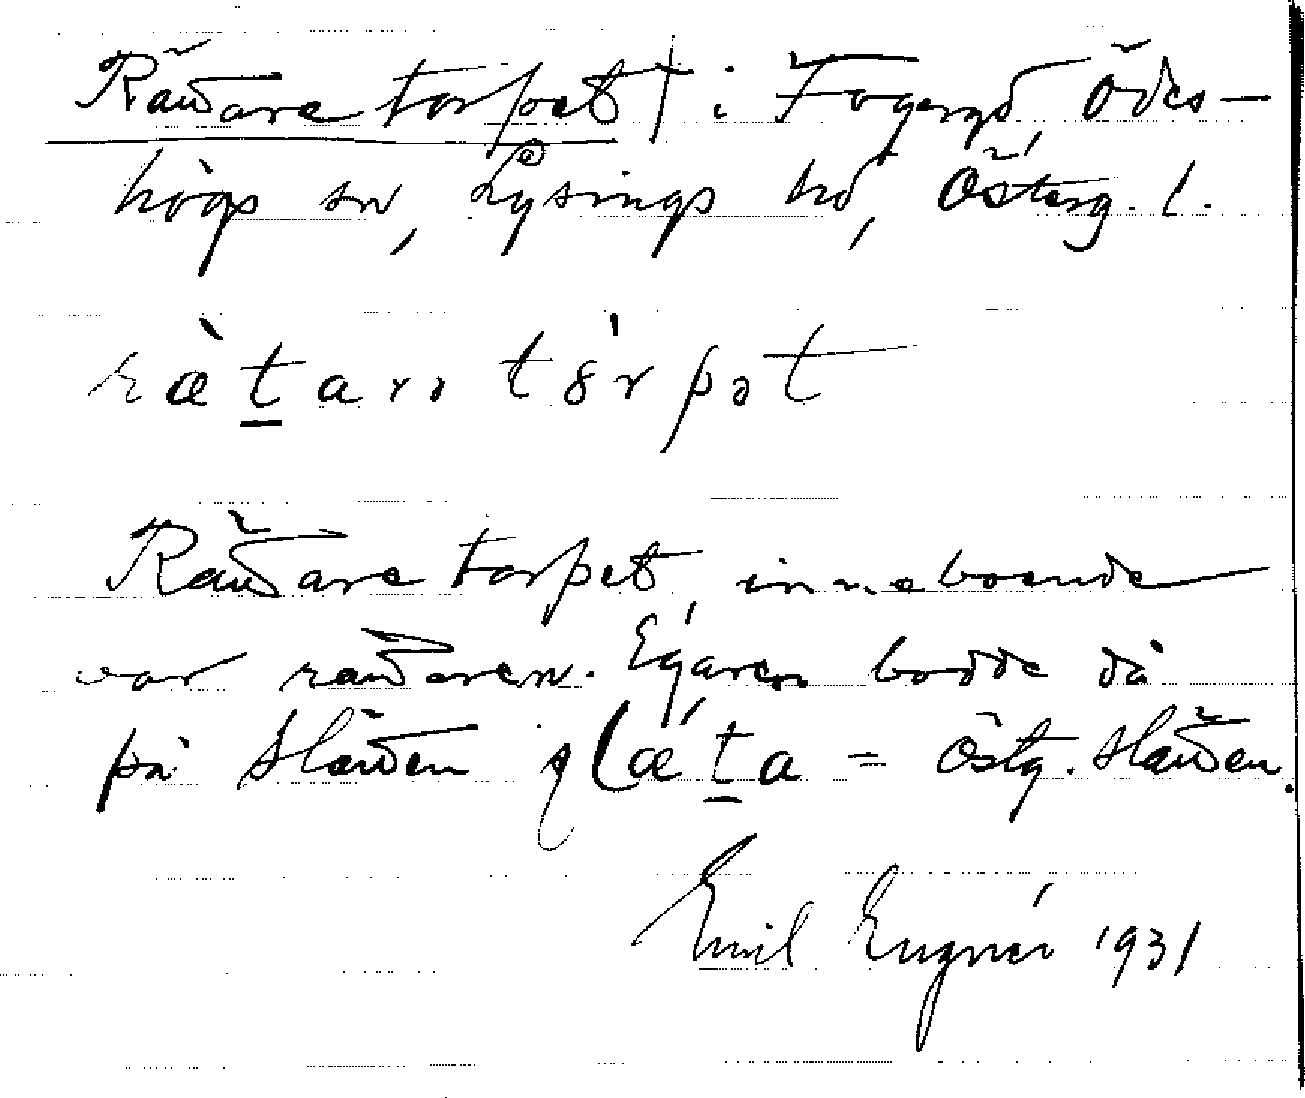 Rättaretorpet † i Fogeryd, Ödes-
högs sn, Lysings hd, Österg. l.
ræ̀tarə tórpət
Rättaretorpet, inneboende
var rättaren. Ägaren bodde då
på slätten, slæta = östg. slätten.
Emil Engnér 1931